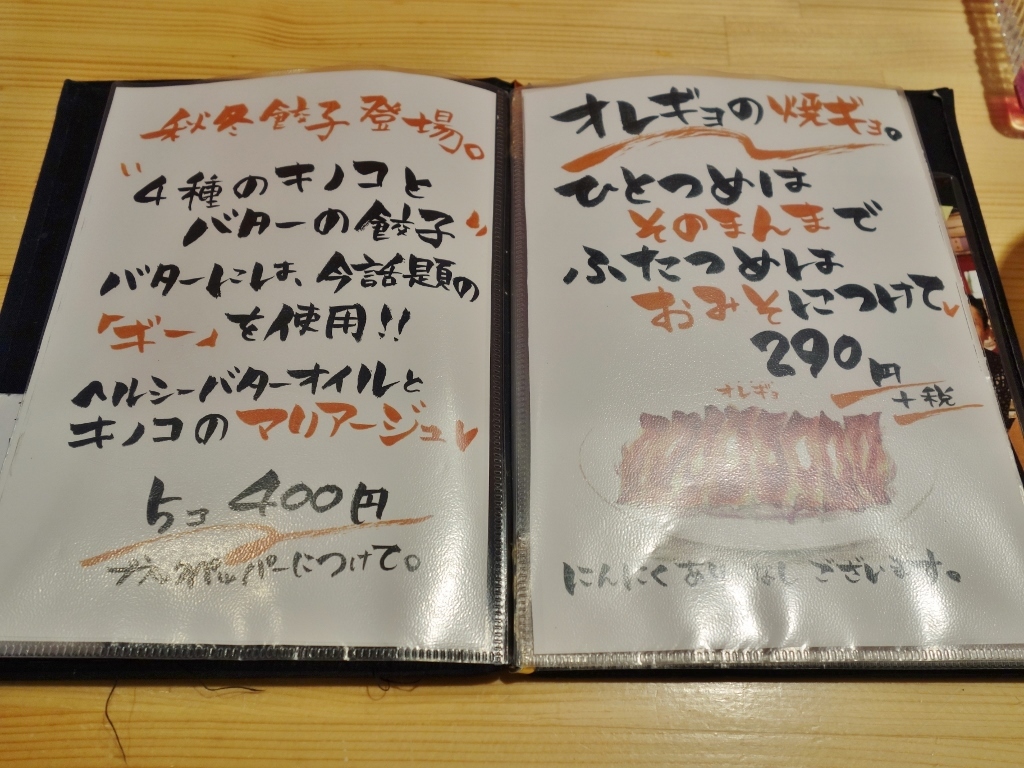 秋冬餃子登場。
"4種のキノコと
バターの餃子"
バターには、今話題の
「ギー」を使用!!
ヘルシーバターオイルと
キノコのマリアージュ
5コ 400円
ブラックペッパーにつけて。
オレギョの焼ギョ。
ひとつめは
そのまんまで
ふたつめは
おみそにつけて
290円
+税
オレギョ
にんにくあり なしございます。